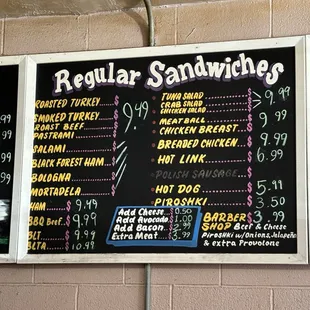 Regular Sandwiches
ROASTED TURKEY $
SMOKED TURKEY $
ROAST BEEF $
PASTRAMI $
SALAMI $
BLACK FOREST HAM $
BOLOGNA $
MORTADELA $
9.49
HAM $ 9.49
BBQ BEEF $ 9.99
BLT $ 9.99
BLTA $ 10.49
TUNA SALAD
CRAB SALAD
CHICKEN SALAD
$ 9.99
MEATBALL
CHICKEN BREAST
$ 9.99
BREADED CHICKEN $ 9.99
HOT LINK $ 6.99
POLISH SAUSAGE
HOT DOG $ 5.49
PIROSHKI $ 3.99
BARBER $ 3.99
SHOP BEEF & CHEESE
PIROSHKI W/ONIONS, JALAPEÑO
& EXTRA PROVOLONE
Add Cheese 0.50
Add Avocado $1.00
Add Bacon 2.99
Extra Meat 3.99